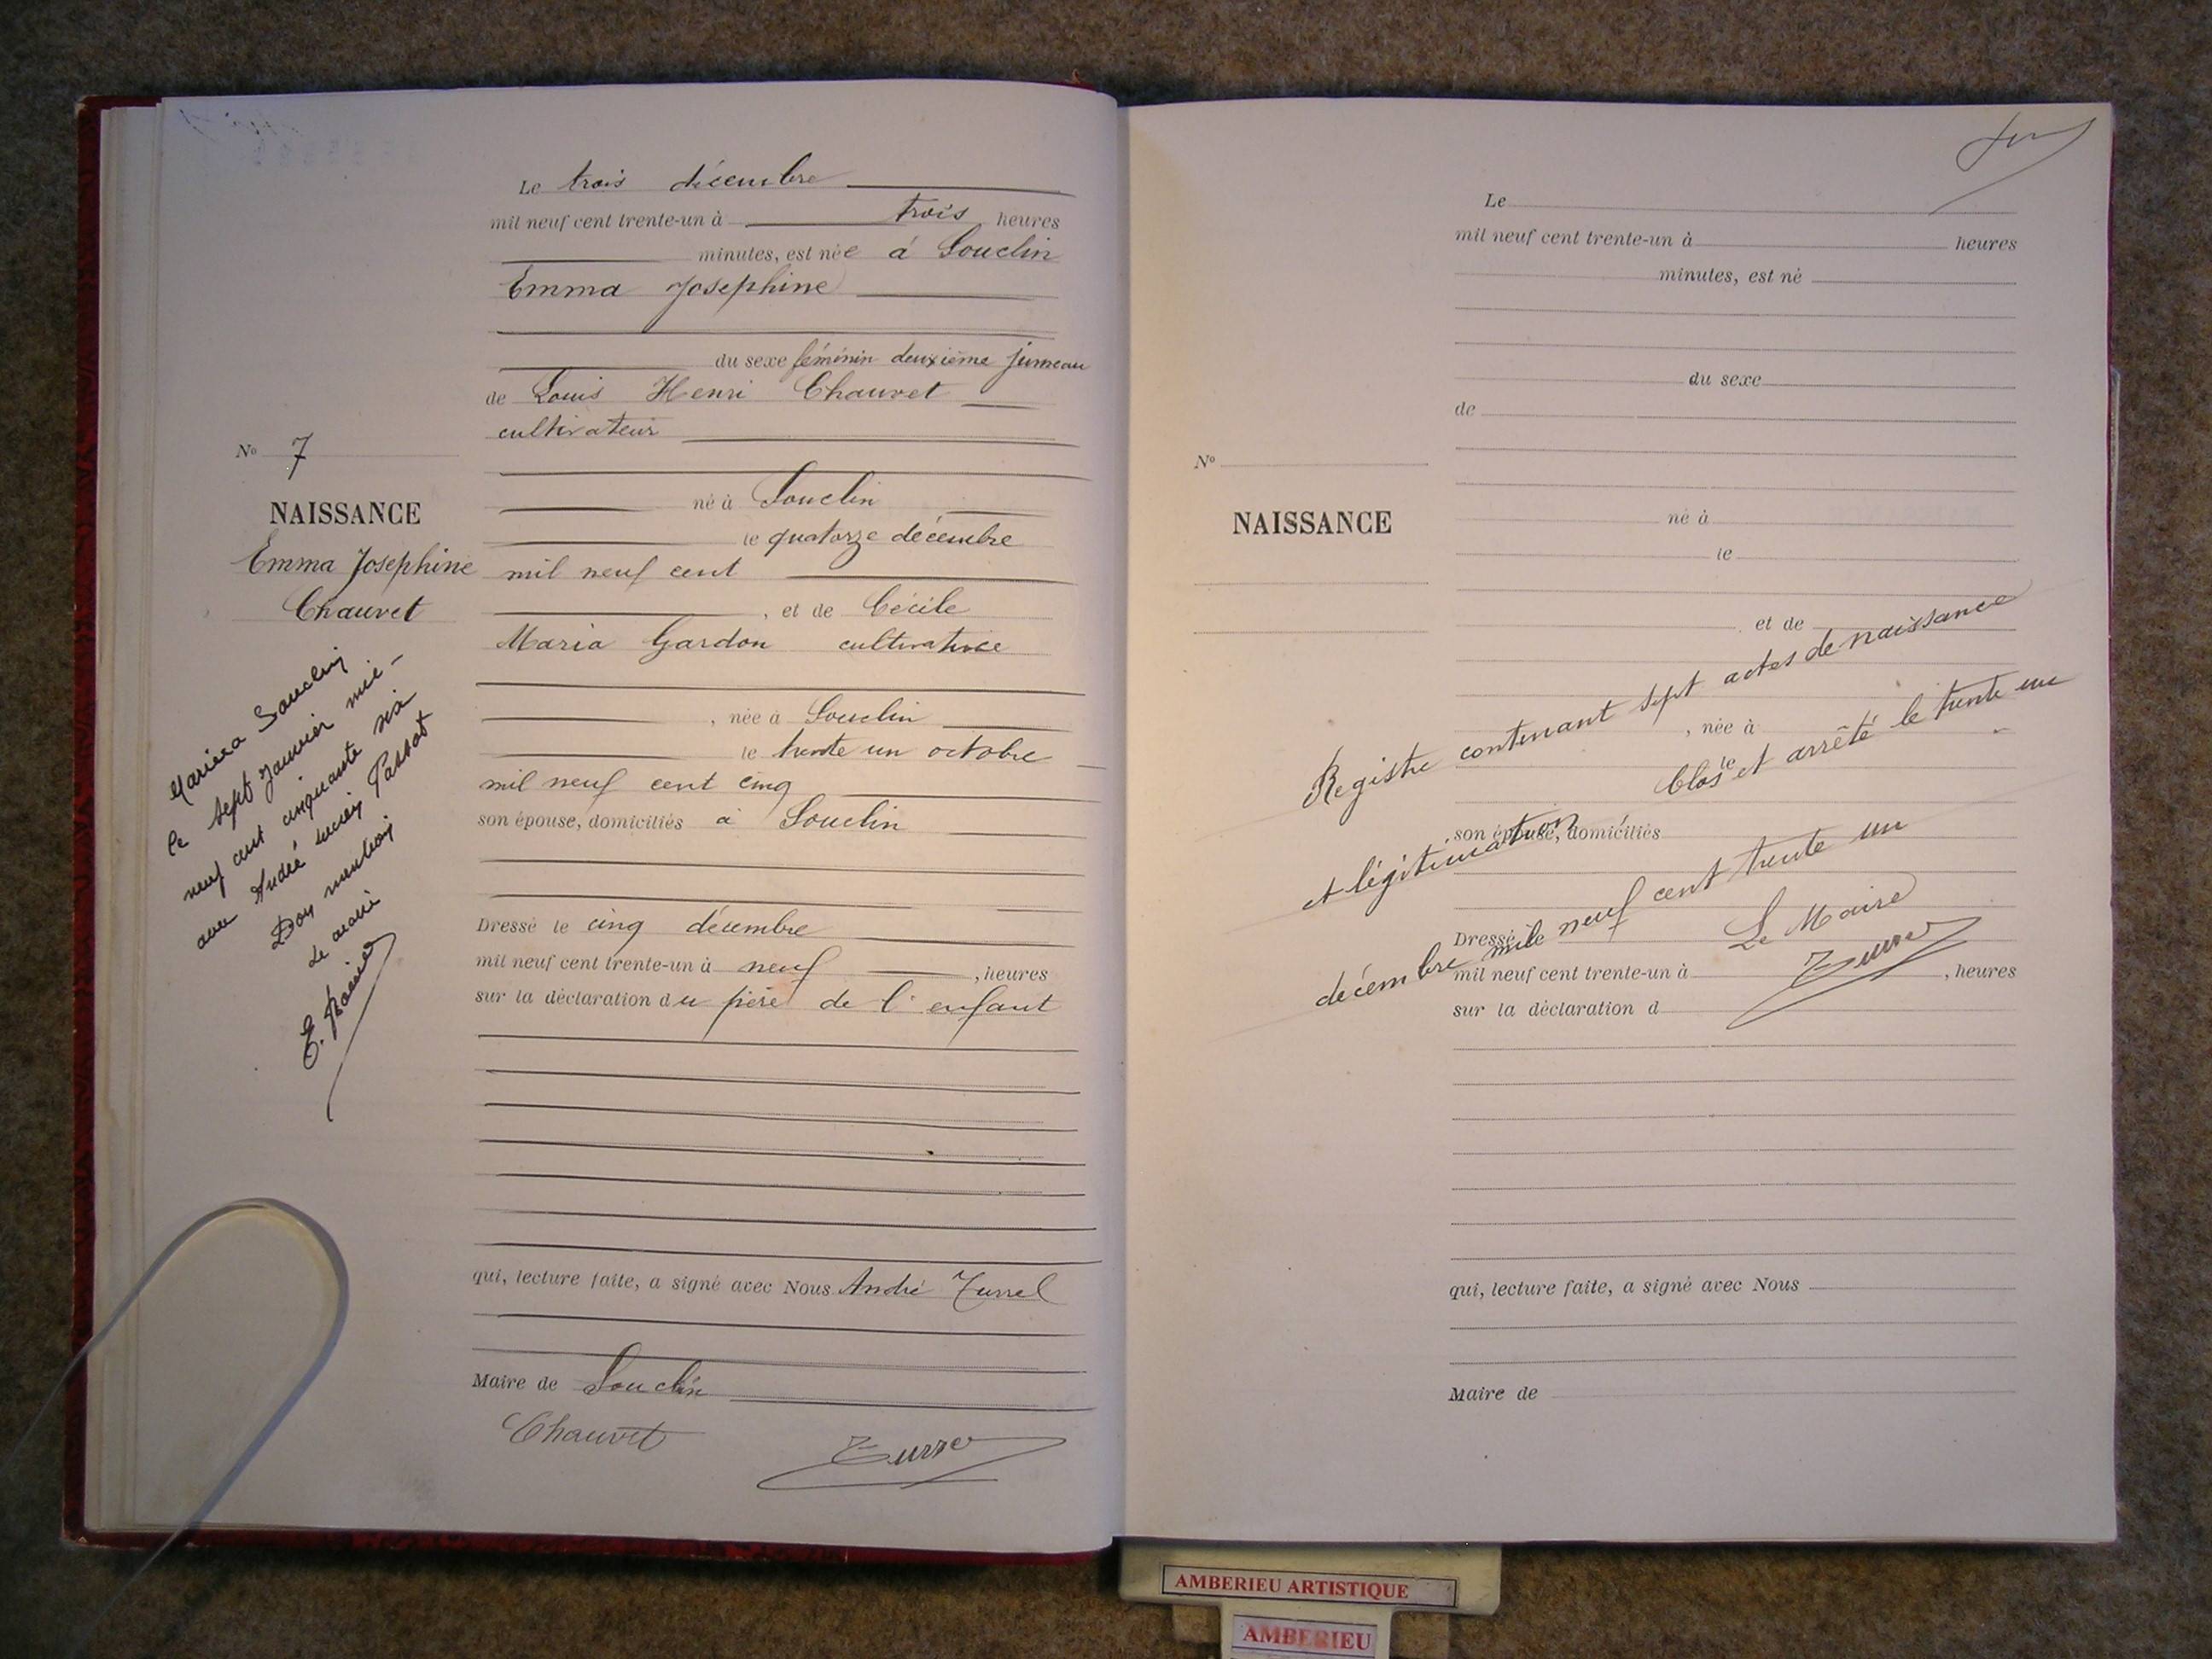 Le trois décembre
mil neuf cent trente-un à trois heures
minutes, est née à Souclin
Emma Josephine
du sexe féminin deuxième jumeau
de Louis Henri Chauvet
cultivateur
né à Souclin
le quatorze décembre
mil neuf cent
, et de Cécile
Maria Gardon cultivatrice
, née à Souclin
le trente un octobre
mil neuf cent cinq
son épouse, domiciliés à Souclin
Dressé le cinq décembre
mil neuf cent trente-un à neuf , heures
sur la déclaration du père de l'enfant
qui, lecture faite, a signé avec Nous André Turrel
Maire de Souclin
Chauvet
Turrel
No 7
NAISSANCE
Emma Josephine
Chauvet
Mariée à Souclin
le sept Janvier mil-
neuf cent cinquante six
avec André Lucien Passot
Don mention
Le maire
Le
mil neuf cent trente-un à heures
minutes, est né
du sexe
de
No
NAISSANCE
né à
le
et de
, née à
le
son épouse, domiciliés
Dressé le
mil neuf cent trente-un à , heures
sur la déclaration d
qui, lecture faite, a signé avec Nous
Maire de
Registre contenant sept actes de naissance
et légitimation Clos et arrêté le trente un
décembre mil neuf cent trente un
Le Maire
Turrel
AMBERIEU ARTISTIQUE
AMBERIEU